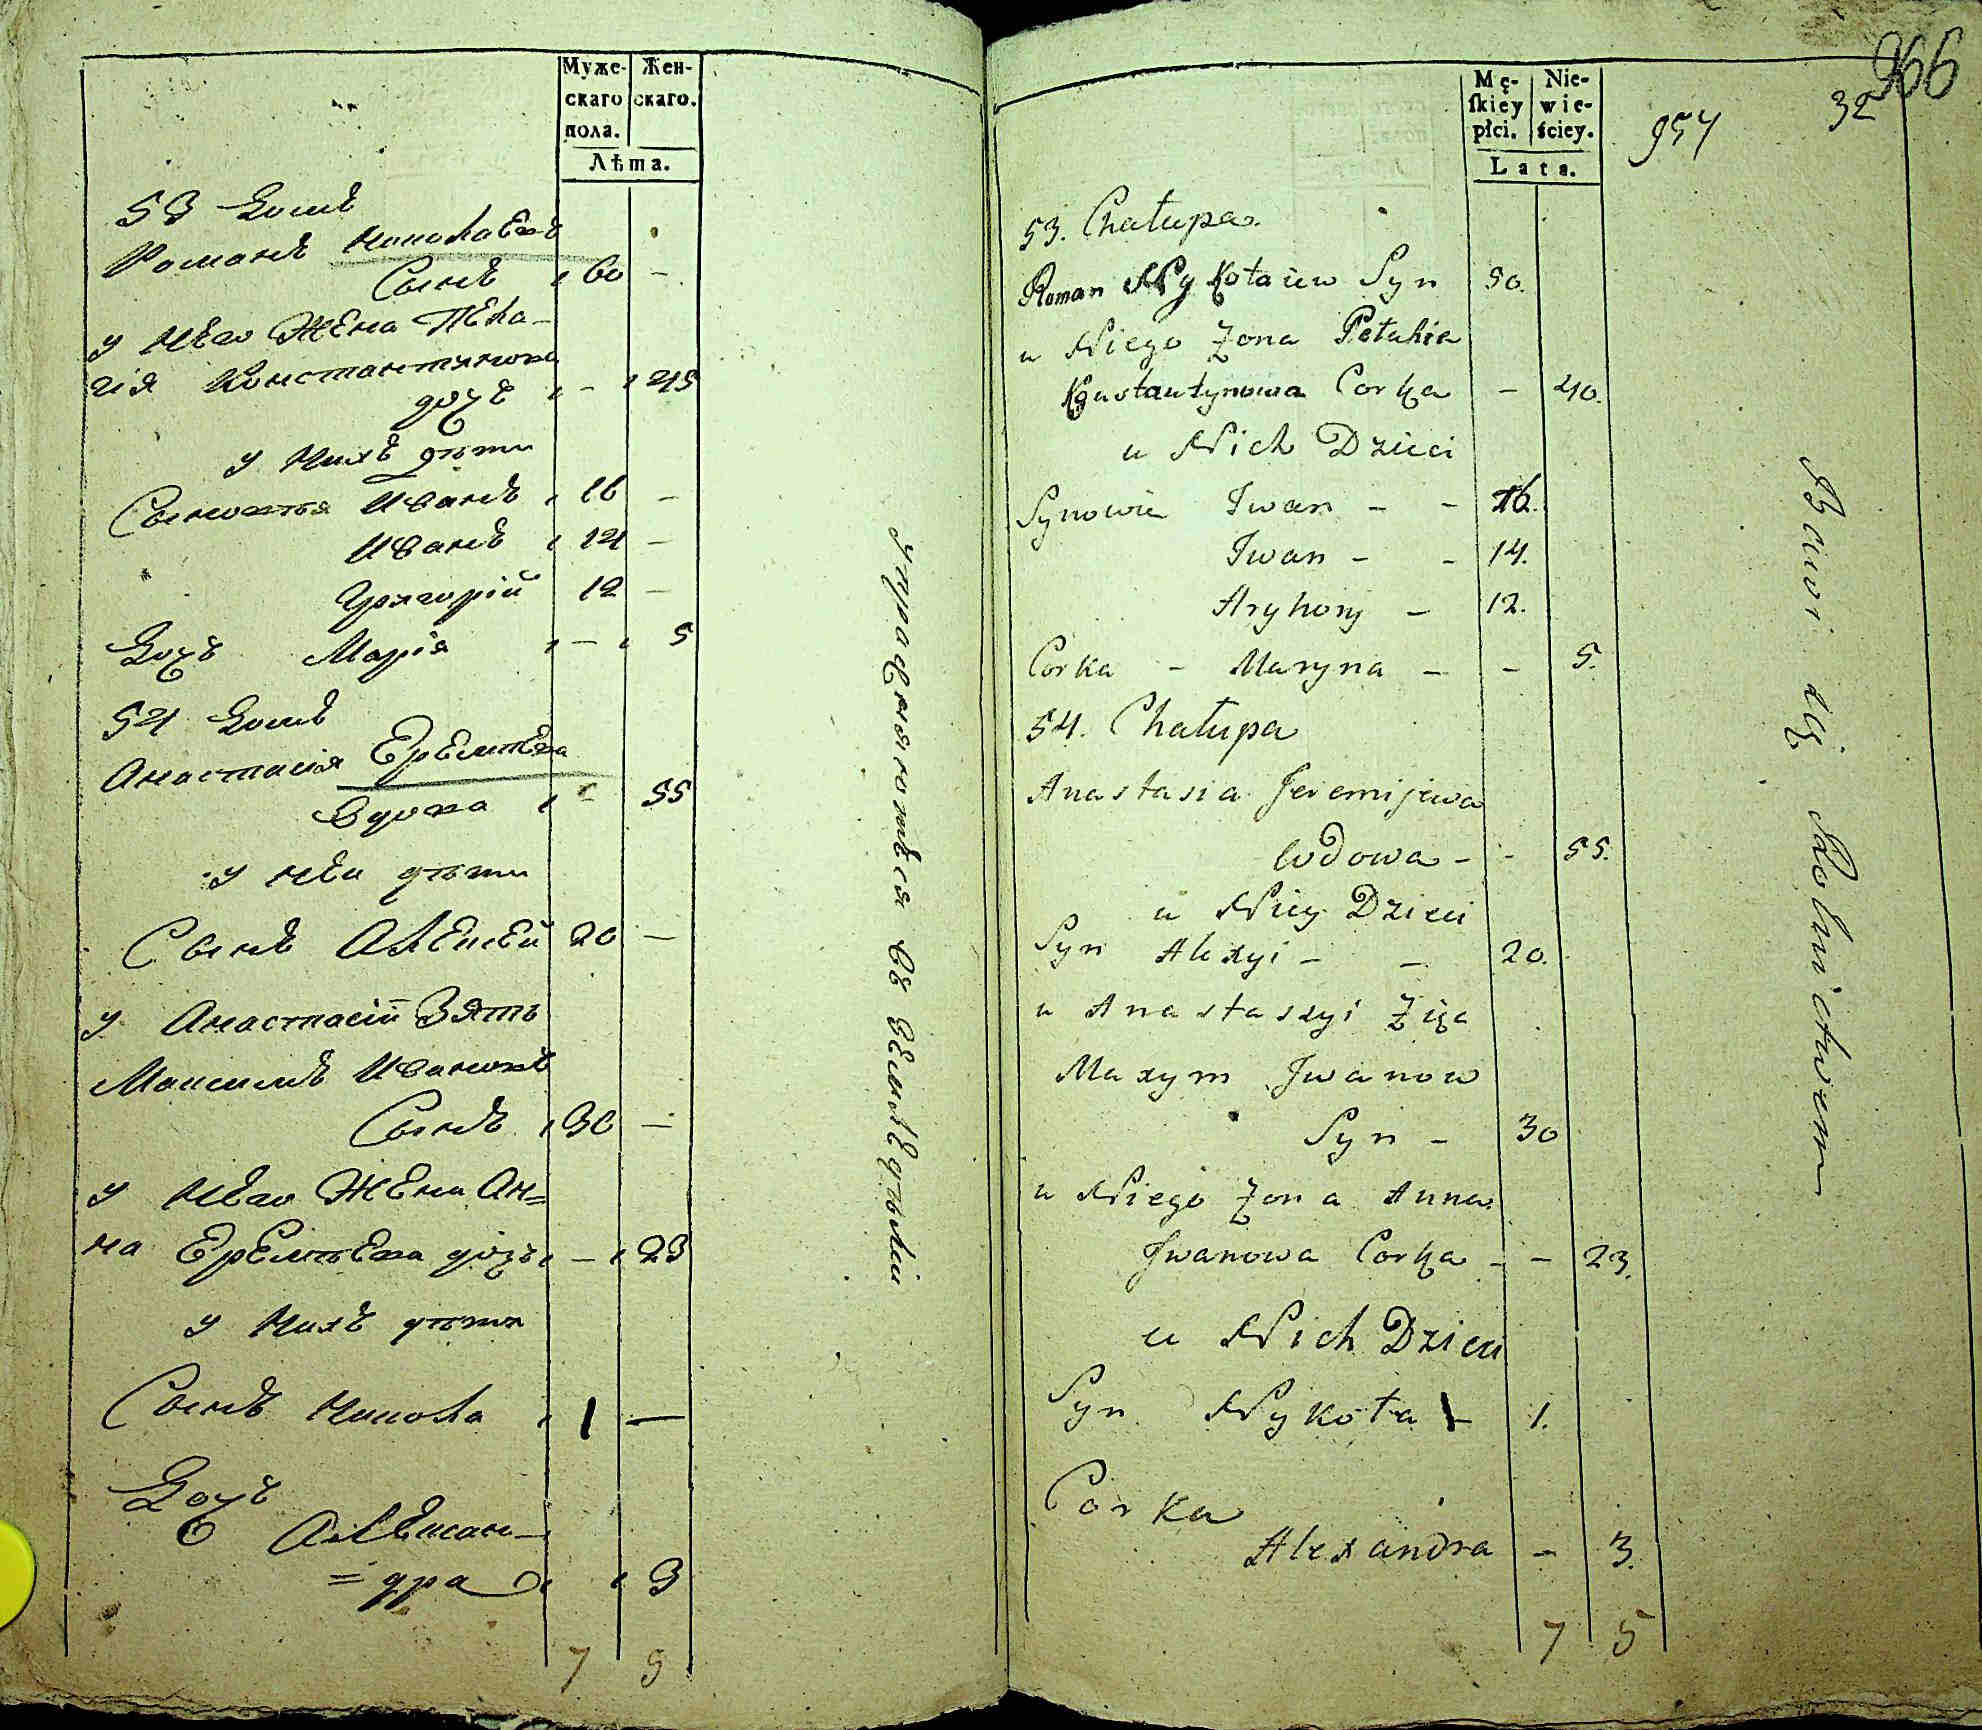 Муже-
скаго
пола.
Жен-
скаго.
Лѣта.
53 Домъ
Романъ Николаевъ
Сынъ 60 –
у него Жена Пела-
гія Константинова
дочь – 45
у нихъ дѣти
Сыновья Иванъ 16 –
Иванъ 14 –
Григорій 12 –
Дочь Марія – 5
54 Домъ
Анастасія Еремѣева
Вдова – 55
у неи дѣти
Сынъ Алексей 20 –
у Анастасіи Зять
Максимъ Ивановъ
Сынъ 30 –
у него Жена Ан=
на Еремѣева дочь – 23
у нихъ дѣти
Сынъ Никола 1 –
Дочь
Алексан-
=дра 3
7 5
упражняютъся въ земледѣліи
966
32
954
Mę-
ſkiey
płci.
Nie-
wie-
ściey.
Lata.
53. Chałupa.
Roman Nykołaiew Syn 50.
u Niego Żona Pełahia
Konstantynowa Corka – 40.
u Nich Dzieci
Synowie Iwan – – 16.
Iwan – – 14.
Aryhory – 12.
Corka – Maryna – – 5.
54. Chałupa
Anastasia Jeremijewa
Wdowa – – 55.
u Niey Dzieci
Syn Alexyi – – 20.
u Anastaszyi Zięc
Maxym Iwanow
Syn – 30
u Niego Żona Anna
Iwanowa Corka – – 23.
u Nich Dzieci
Syn Nykoła – 1.
Corka
Alexandra – 3.
7 5
Bawi się Rolnictwem